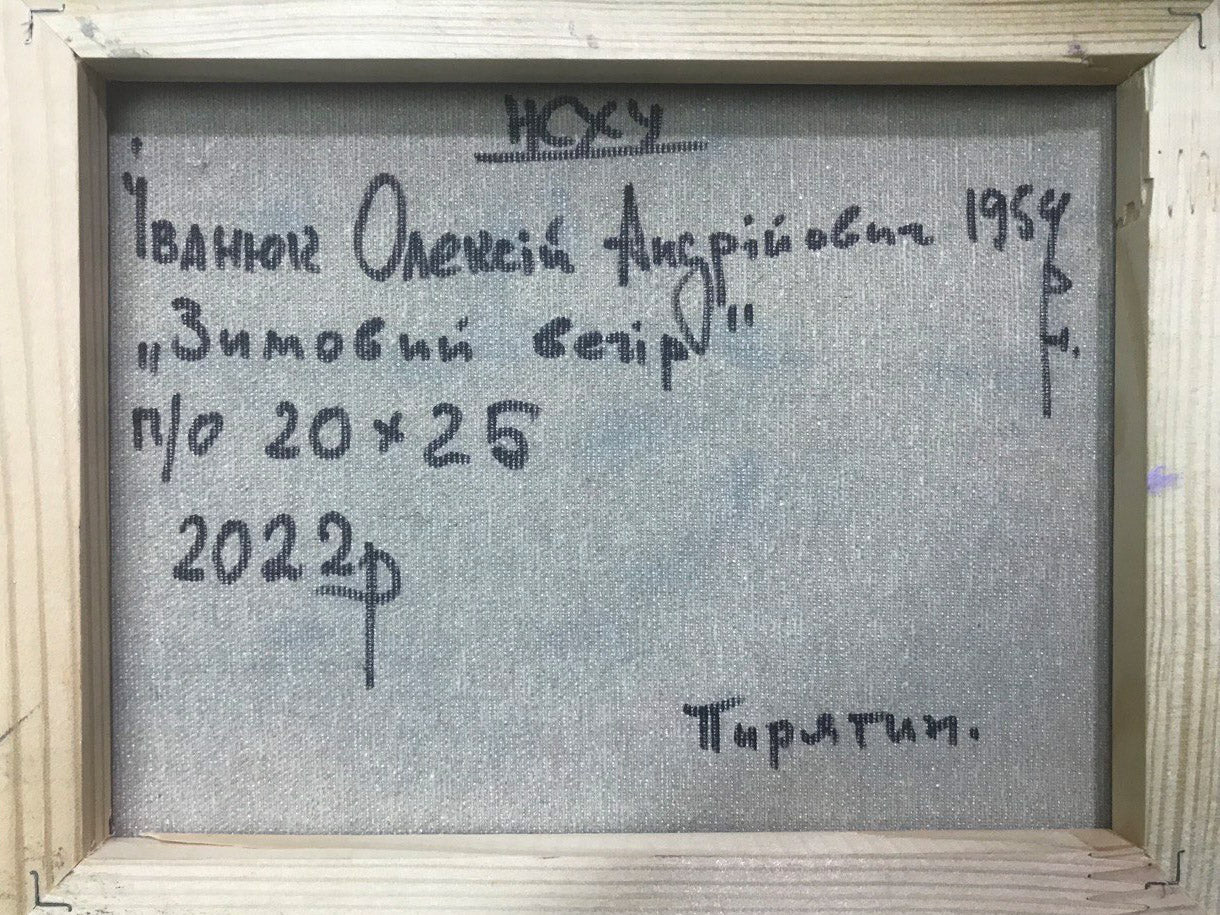 НСХУ
Іванюк Олексій Андрійович 1954 р.н.
„Зимовий вечір"
п/о 20 х 25
2022р
Пирятин.